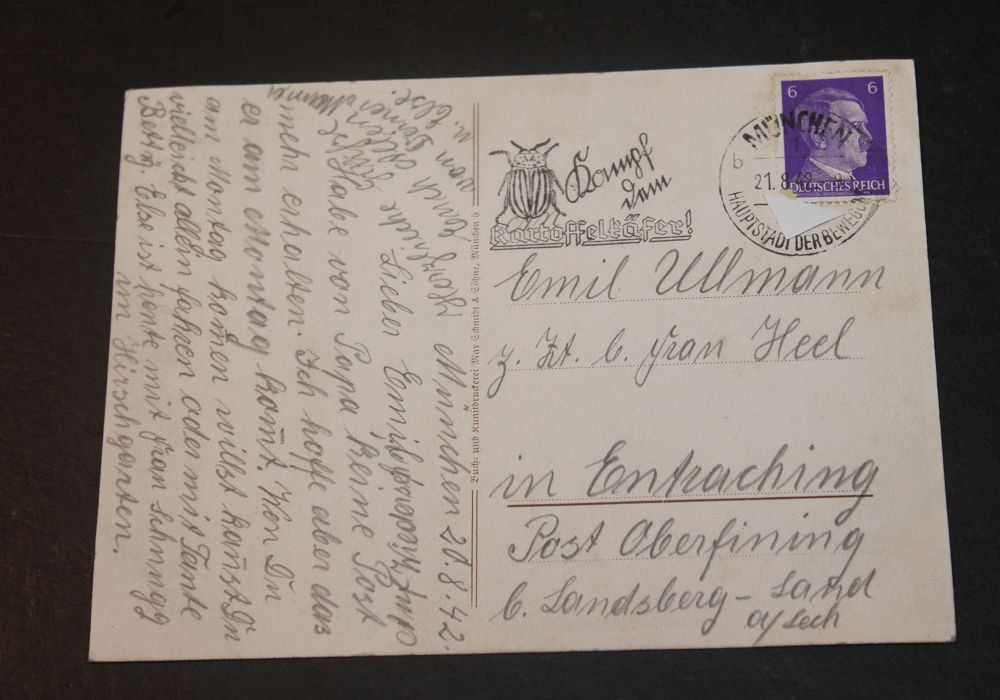 München 20.8.42.
Lieber Emil,
Habe von Papa keine Post
mehr erhalten. Ich hoffe aber das
er am Montag kom̄t. Wen Du
am Montag kom̄en willst kan̄st Du
vielleicht allein fahren oder mit Tante
Betty. Else ist heute mit Frau Schmugg
im Hirschgarten.
Herzliche Grüße
von Deiner Mama
u. Else.
Buch- und Kunstdruckerei Max Schmidt & Söhne, München b
Kampf
dem
Kartoffelkäfer!
6 6
DEUTSCHES REICH
MÜNCHEN
b
21.8.42
7
HAUPTSTADT DER BEWEGUNG
Emil Ullmann
z. Zt. b. Frau Heel
in Entraching
Post Oberfining
b. Landsberg-Land
a/Lech